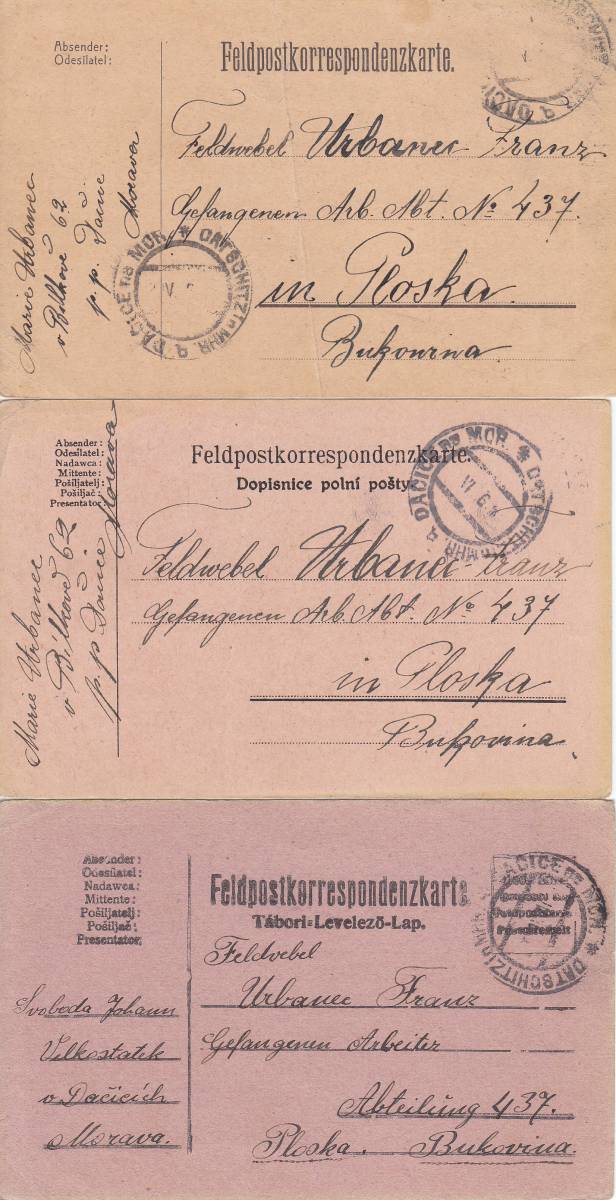 Absender:
Odesílatel:
Feldpostkorrespondenzkarte.
DAČICE na MOR. * DATSCHITZ in MHR.
Feldwebel Urbanec Franz
Gefangenen Arb. Abt. No 437.
in Ploska.
Bukowina
Marie Urbanec
v Bílkově 62
p. p. Dačic
Morava
Absender:
Odesílatel:
Nadawca:
Mittente:
Pošiljatelj:
Pošiljač:
Presentator:
Feldpostkorrespondenzkarte.
Dopisnice polní pošty
DAČICE na MOR. * DATSCHITZ in MHR.
17 6
Feldwebel Urbanec Franz
Gefangenen Arb. Abt. No 437
in Ploska
Bukovina
Marie Urbanec
v Bílkově 62
p. p. Dačic
Morava
Absender:
Odesílatel:
Nadawca:
Mittente:
Pošiljatelj:
Pošiljač:
Presentator:
Feldpostkorrespondenzkarte
Tábori-Levelező-Lap.
DAČICE na MOR. * DATSCHITZ in MHR.
Feldvebel
Urbanec Franz
Gefangenen Arbeiter
Abteilung 437.
Ploska. Bukovina.
Svoboda Johann
Velkostatek
v Dačicích
Morava.